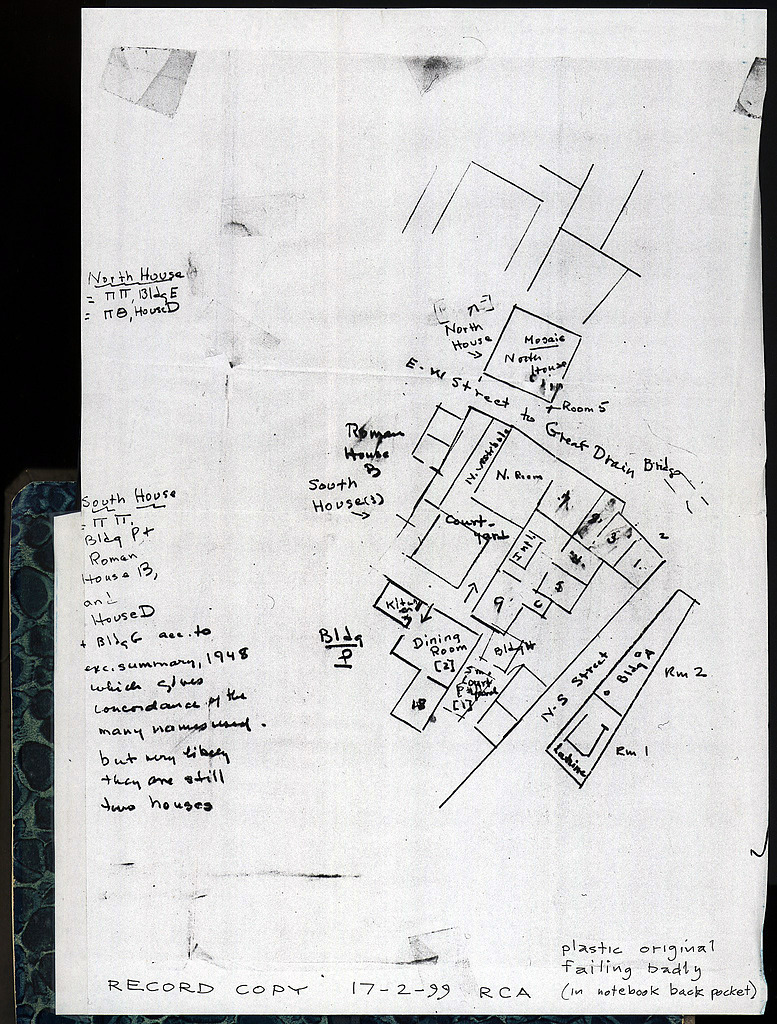 North House
= ΠΠ, Bldg E
= ΠΘ, House D
North
House
Mosaic
North
House
Room 5
E. W Street to Great Drain Bridge
Roman
House
B
South
House(s)
N. Vestibule
N. Room
Court-
yard
7
2
3
1
2
5
9
C
South House
= ΠΠ,
Bldg P +
Roman
House B,
and
House D
+ Bldg G acc. to
exc. summary, 1948
which gives
concordance of the
many names used.
but very likely
they are still
two houses
Bldg
P
Kitchen
Dining
Room
[2]
Court
[1]
Bldg H
18
N-S Street
Bldg A
Rm 2
Rm 1
Latrine
plastic original
failing badly
(in notebook back pocket)
RECORD COPY 17-2-99 RCA